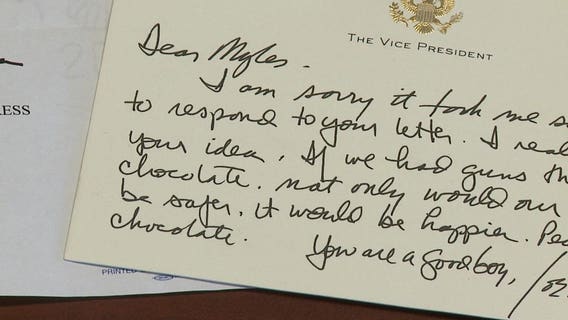 THE VICE PRESIDENT
Dear Myles.
I am sorry it took me s
to respond to your letter. I real
your idea. If we had guns th
chocolate. not only would our
be safer. it would be happier. Peo
chocolate.
You are a good boy,
ESS
PRINTED